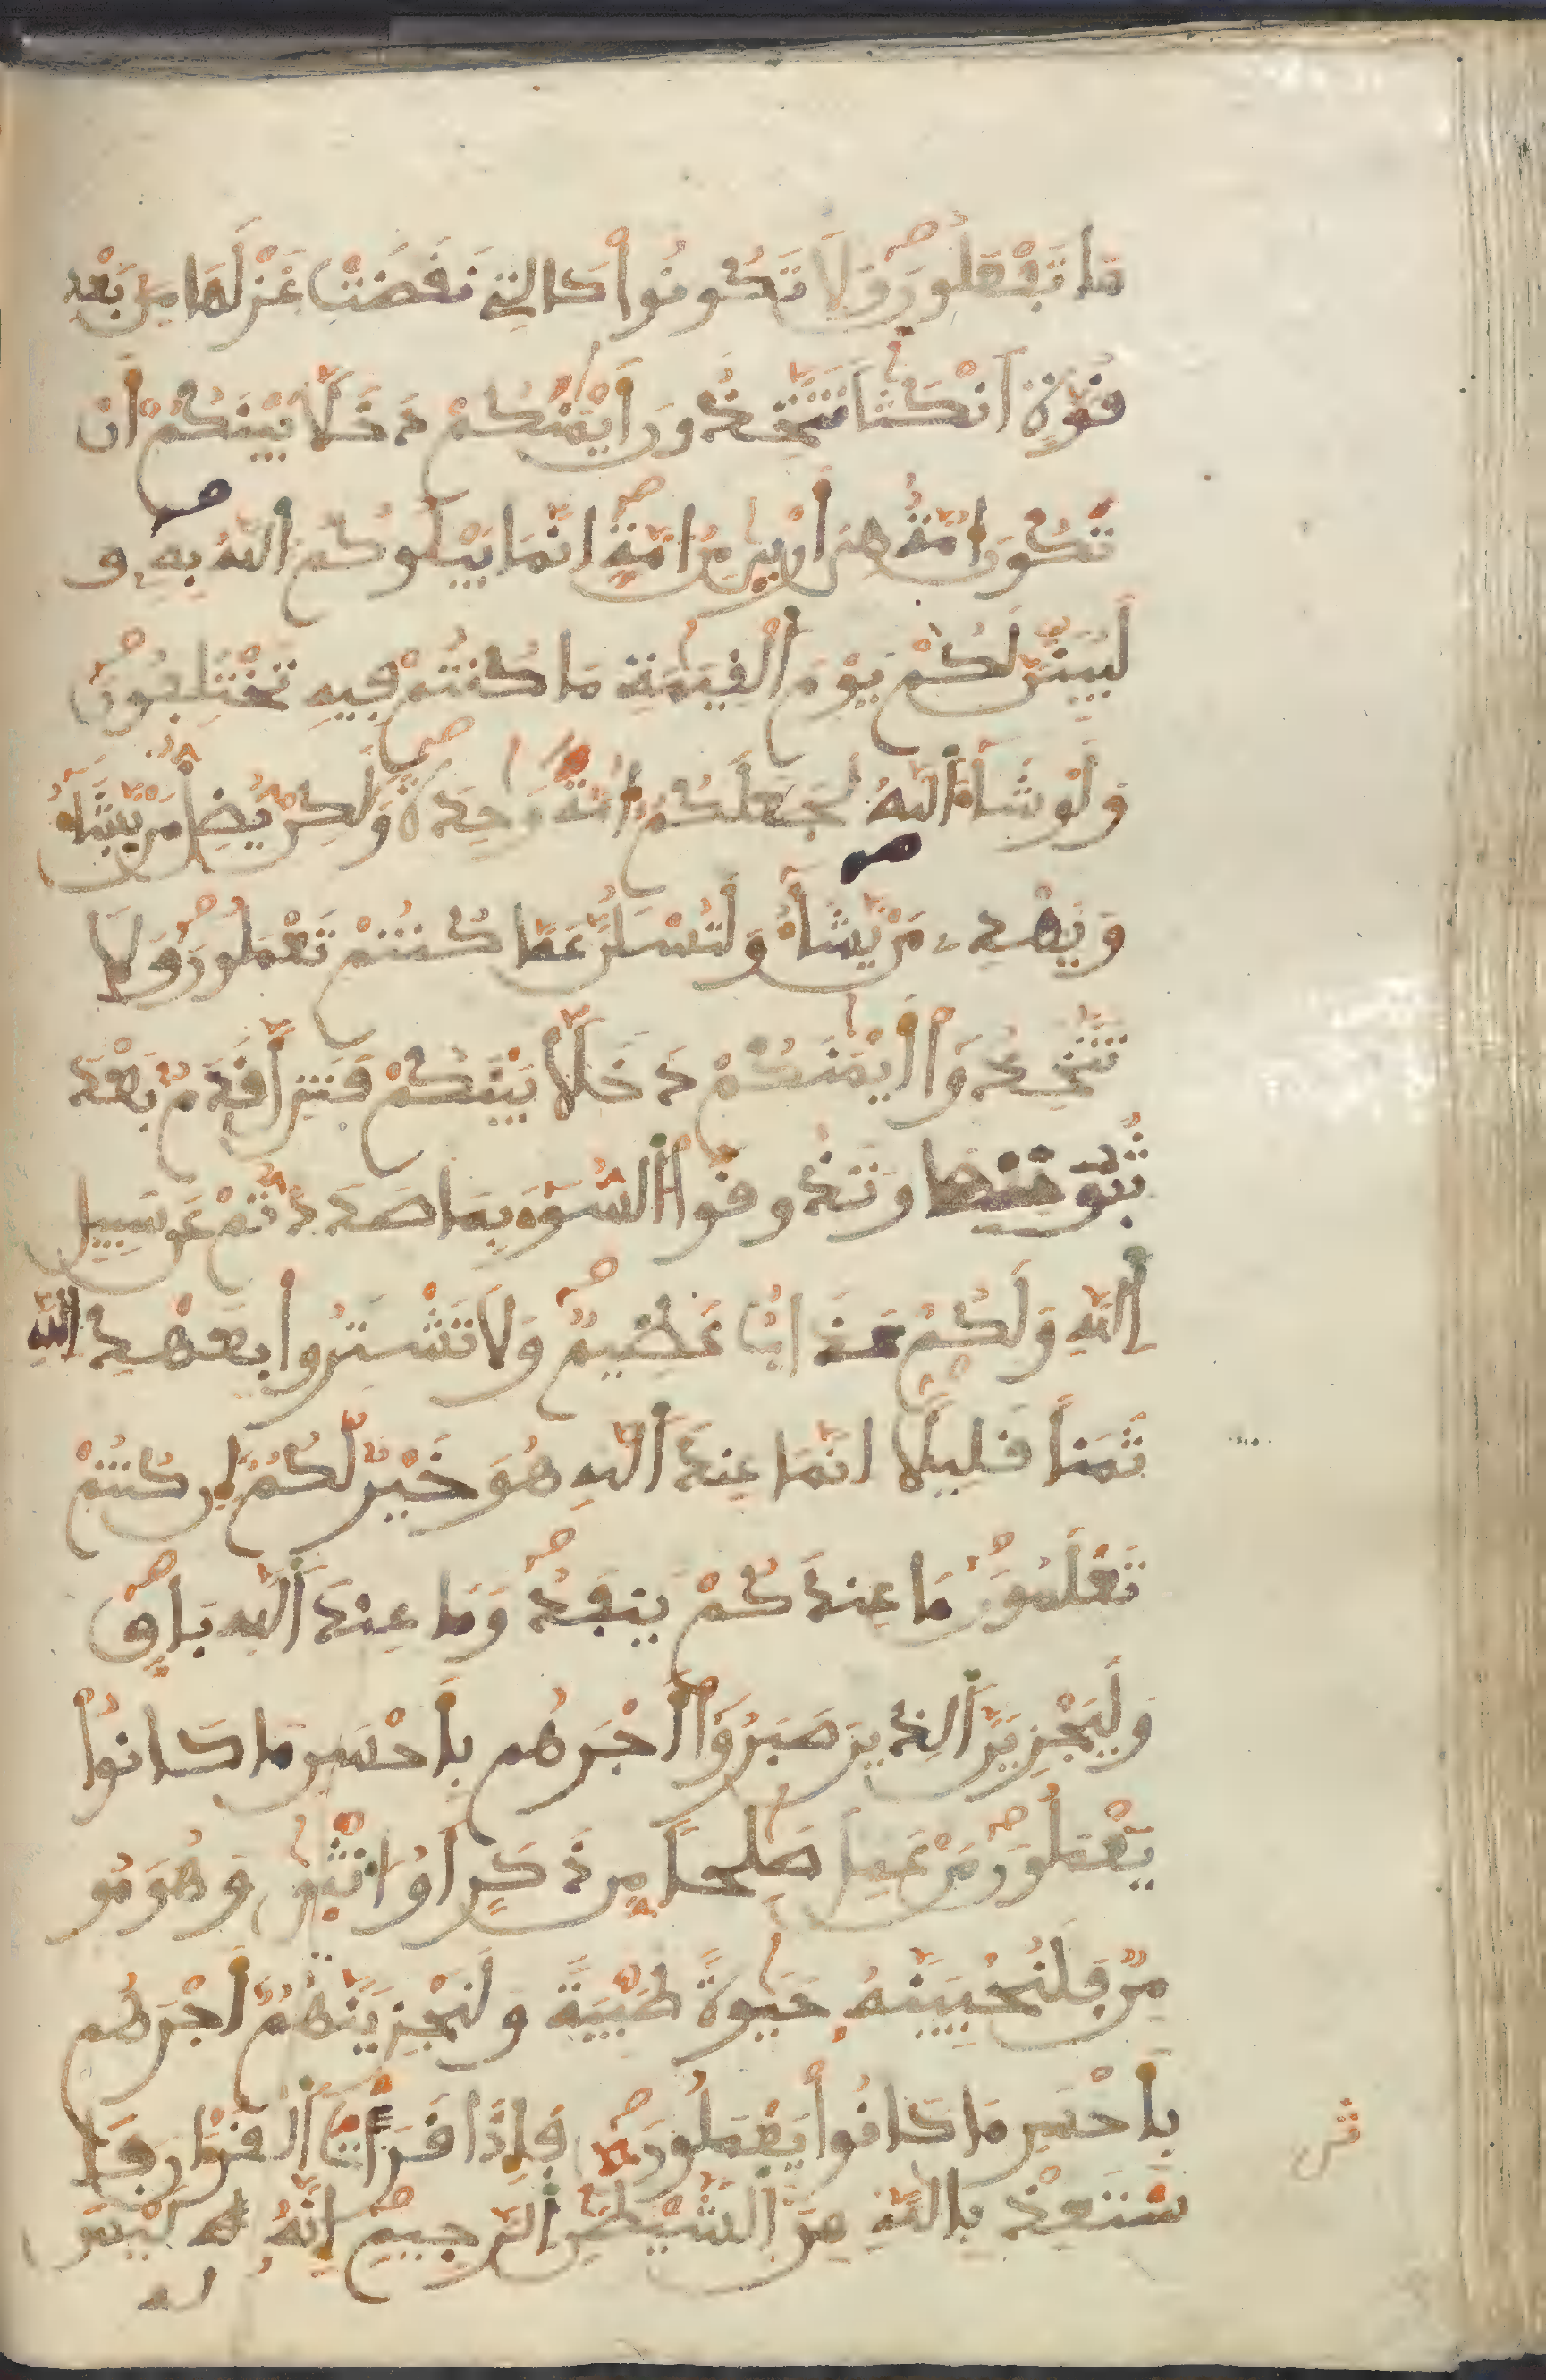 مَا تَفْعَلُونَ وَلَا تَكُونُوا۟ كَالتِے نَقَضَتْ غَزْلَهَا مِنۢ بَعْدِ
قُوَّةٍ اَنكَٰثاً تَتَّخِذُونَ أَيْمَٰنَكُمْ دَخَلَاۢ بَيْنَكُمُۥٓ أَن
تَكُونَ امَّةٌ هِىَ أَرْبىٰ مِنُ امَّةٍ اِنَّمَا يَبْلُوكُمُ اُللَّهُ بِهِۦ وَ
لَيُبَيِّنَنَّ لَكُمْ يَوْمَ اَلْقِيَٰمَةِ مَا كُنتُمْ فِيهِ تَخْتَلِفُونَ
وَلَوْ شَآءَ اَللَّهُ لَجَعَلَكُمُۥٓ أُمَّةً وَٰحِدَةً وَلَٰكِنْ يُّضِلُّ مَنْ يَّشَآءُ
وَيَهْدِے مَنْ يَّشَآءُ وَلَتُسْـَٔلُنَّ عَمَّا كُنتُمْ تَعْمَلُونَ وَلَا
تَتَّخِذُوٓا۟ أَيْمَٰنَكُمْ دَخَلَاۢ بَيْنَكُمْ فَتَزِلَّ قَدَمُۢ بَعْدَ
ثُبُوتِهَا وَتَذُوقُوا۟ اُلسُّوٓءَ بِمَا صَدَدتُّمْ عَن سَبِيلِ
اِللَّهِ وَلَكُمْ عَذَابٌ عَظِيمٌ وَلَا تَشْتَرُوا۟ بِعَهْدِ اِللَّهِ
ثَمَناً قَلِيلًا اِنَّمَا عِندَ اَللَّهِ هُوَ خَيْرٌ لَّكُمُۥٓ إِن كُنتُمْ
تَعْلَمُونَ مَا عِندَكُمْ يَنفَدُ وَمَا عِندَ اَللَّهِ بَاقٍ
وَلَيَجْزِيَنَّ اَلذِينَ صَبَرُوٓا۟ أَجْرَهُم بِأَحْسَنِ مَا كَانُوا۟
يَعْمَلُونَ مَنْ عَمِلَ صَٰلِحاً مِّن ذَكَرٍ اَوُ انثىٰ وَهُوَ مُو
مِنٌ فَلَنُحْيِيَنَّهُۥ حَيَوٰةً طَيِّبَةً وَلَنَجْزِيَنَّهُمُۥٓ أَجْرَهُم
بِأَحْسَنِ مَا كَانُوا۟ يَعْمَلُونَ فَإِذَا قَرَأْتَ اَلْقُرْءَانَ فَا
سْتَعِذْ بِاللَّهِ مِنَ اَلشَّيْطَٰنِ اِلرَّجِيمِ إِنَّهُۥ لَيْسَ
لَهُ